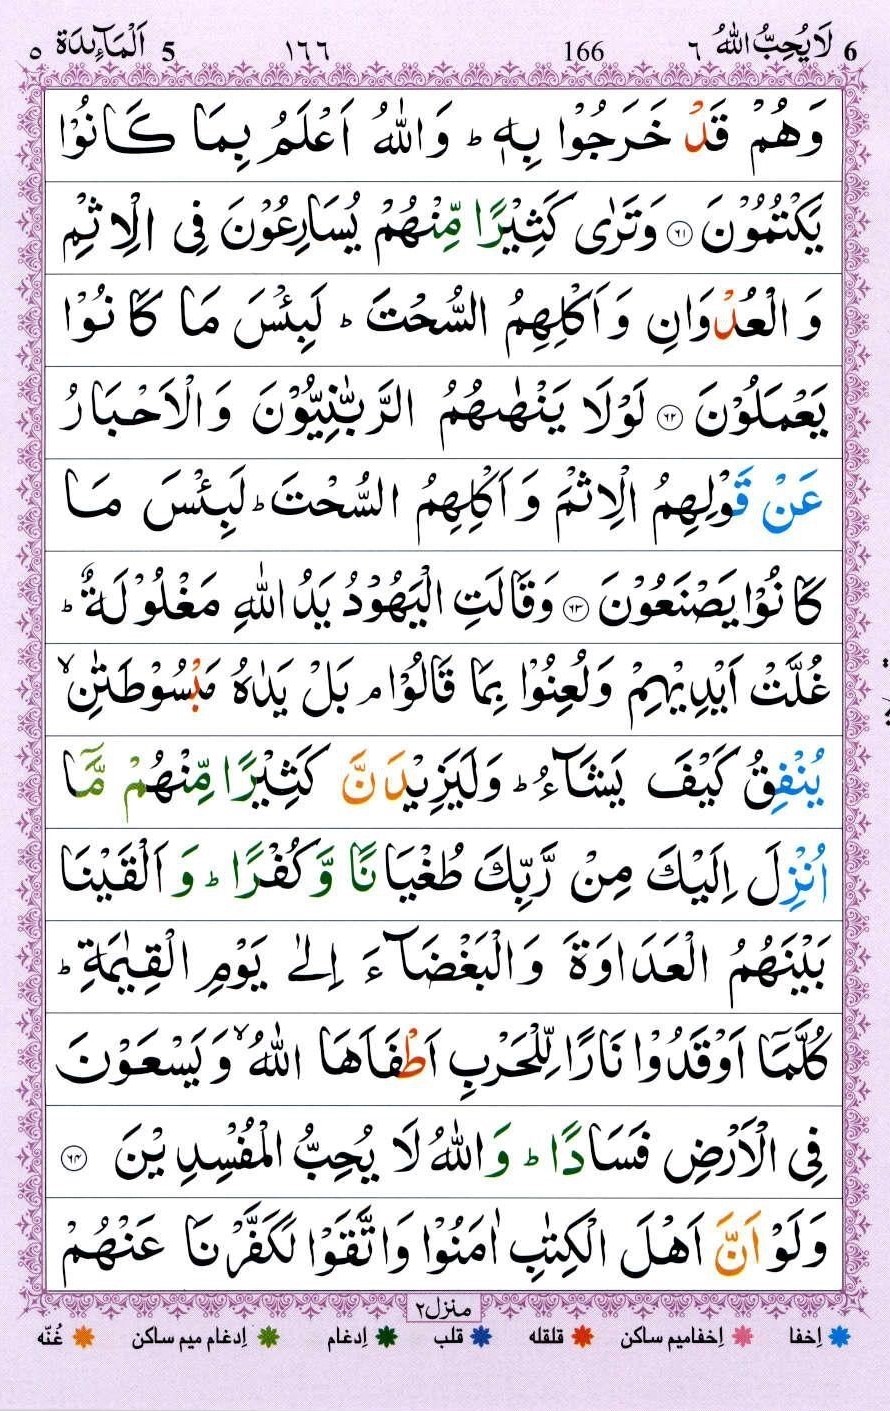 6 لَا يُحِبُّ اللّٰهُ ٦ 166 ١٦٦ 5 اَلْمَآئِدَة ٥
وَهُمْ قَدْ خَرَجُوْا بِهٖ ؕ وَاللّٰهُ اَعْلَمُ بِمَا كَانُوْا
يَكْتُمُوْنَ ۝۶۱ وَتَرٰى كَثِيْرًا مِّنْهُمْ يُسَارِعُوْنَ فِى الْاِثْمِ
وَالْعُدْوَانِ وَاَكْلِهِمُ السُّحْتَ ؕ لَبِئْسَ مَا كَانُوْا
يَعْمَلُوْنَ ۝۶۲ لَوْلَا يَنْهٰىهُمُ الرَّبّٰنِيُّوْنَ وَالْاَحْبَارُ
عَنْ قَوْلِهِمُ الْاِثْمَ وَاَكْلِهِمُ السُّحْتَ ؕ لَبِئْسَ مَا
كَانُوْا يَصْنَعُوْنَ ۝۶۳ وَقَالَتِ الْيَهُوْدُ يَدُ اللّٰهِ مَغْلُوْلَةٌ ؕ
غُلَّتْ اَيْدِيْهِمْ وَلُعِنُوْا بِمَا قَالُوْا ۘ بَلْ يَدٰهُ مَبْسُوْطَتٰنِ ۙ
يُنْفِقُ كَيْفَ يَشَآءُ ؕ وَلَيَزِيْدَنَّ كَثِيْرًا مِّنْهُمْ مَّاۤ
اُنْزِلَ اِلَيْكَ مِنْ رَّبِّكَ طُغْيَانًا وَّكُفْرًا ؕ وَاَلْقَيْنَا
بَيْنَهُمُ الْعَدَاوَةَ وَالْبَغْضَآءَ اِلٰى يَوْمِ الْقِيٰمَةِ ؕ
كُلَّمَاۤ اَوْقَدُوْا نَارًا لِّلْحَرْبِ اَطْفَاَهَا اللّٰهُ ۙ وَيَسْعَوْنَ
فِى الْاَرْضِ فَسَادًا ؕ وَاللّٰهُ لَا يُحِبُّ الْمُفْسِدِيْنَ ۝۶۴
وَلَوْ اَنَّ اَهْلَ الْكِتٰبِ اٰمَنُوْا وَاتَّقَوْا لَكَفَّرْنَا عَنْهُمْ
منزل۲
اِخفا اِخفامیم ساکن قلقله قلب اِدغام اِدغام میم ساکن غُنّه